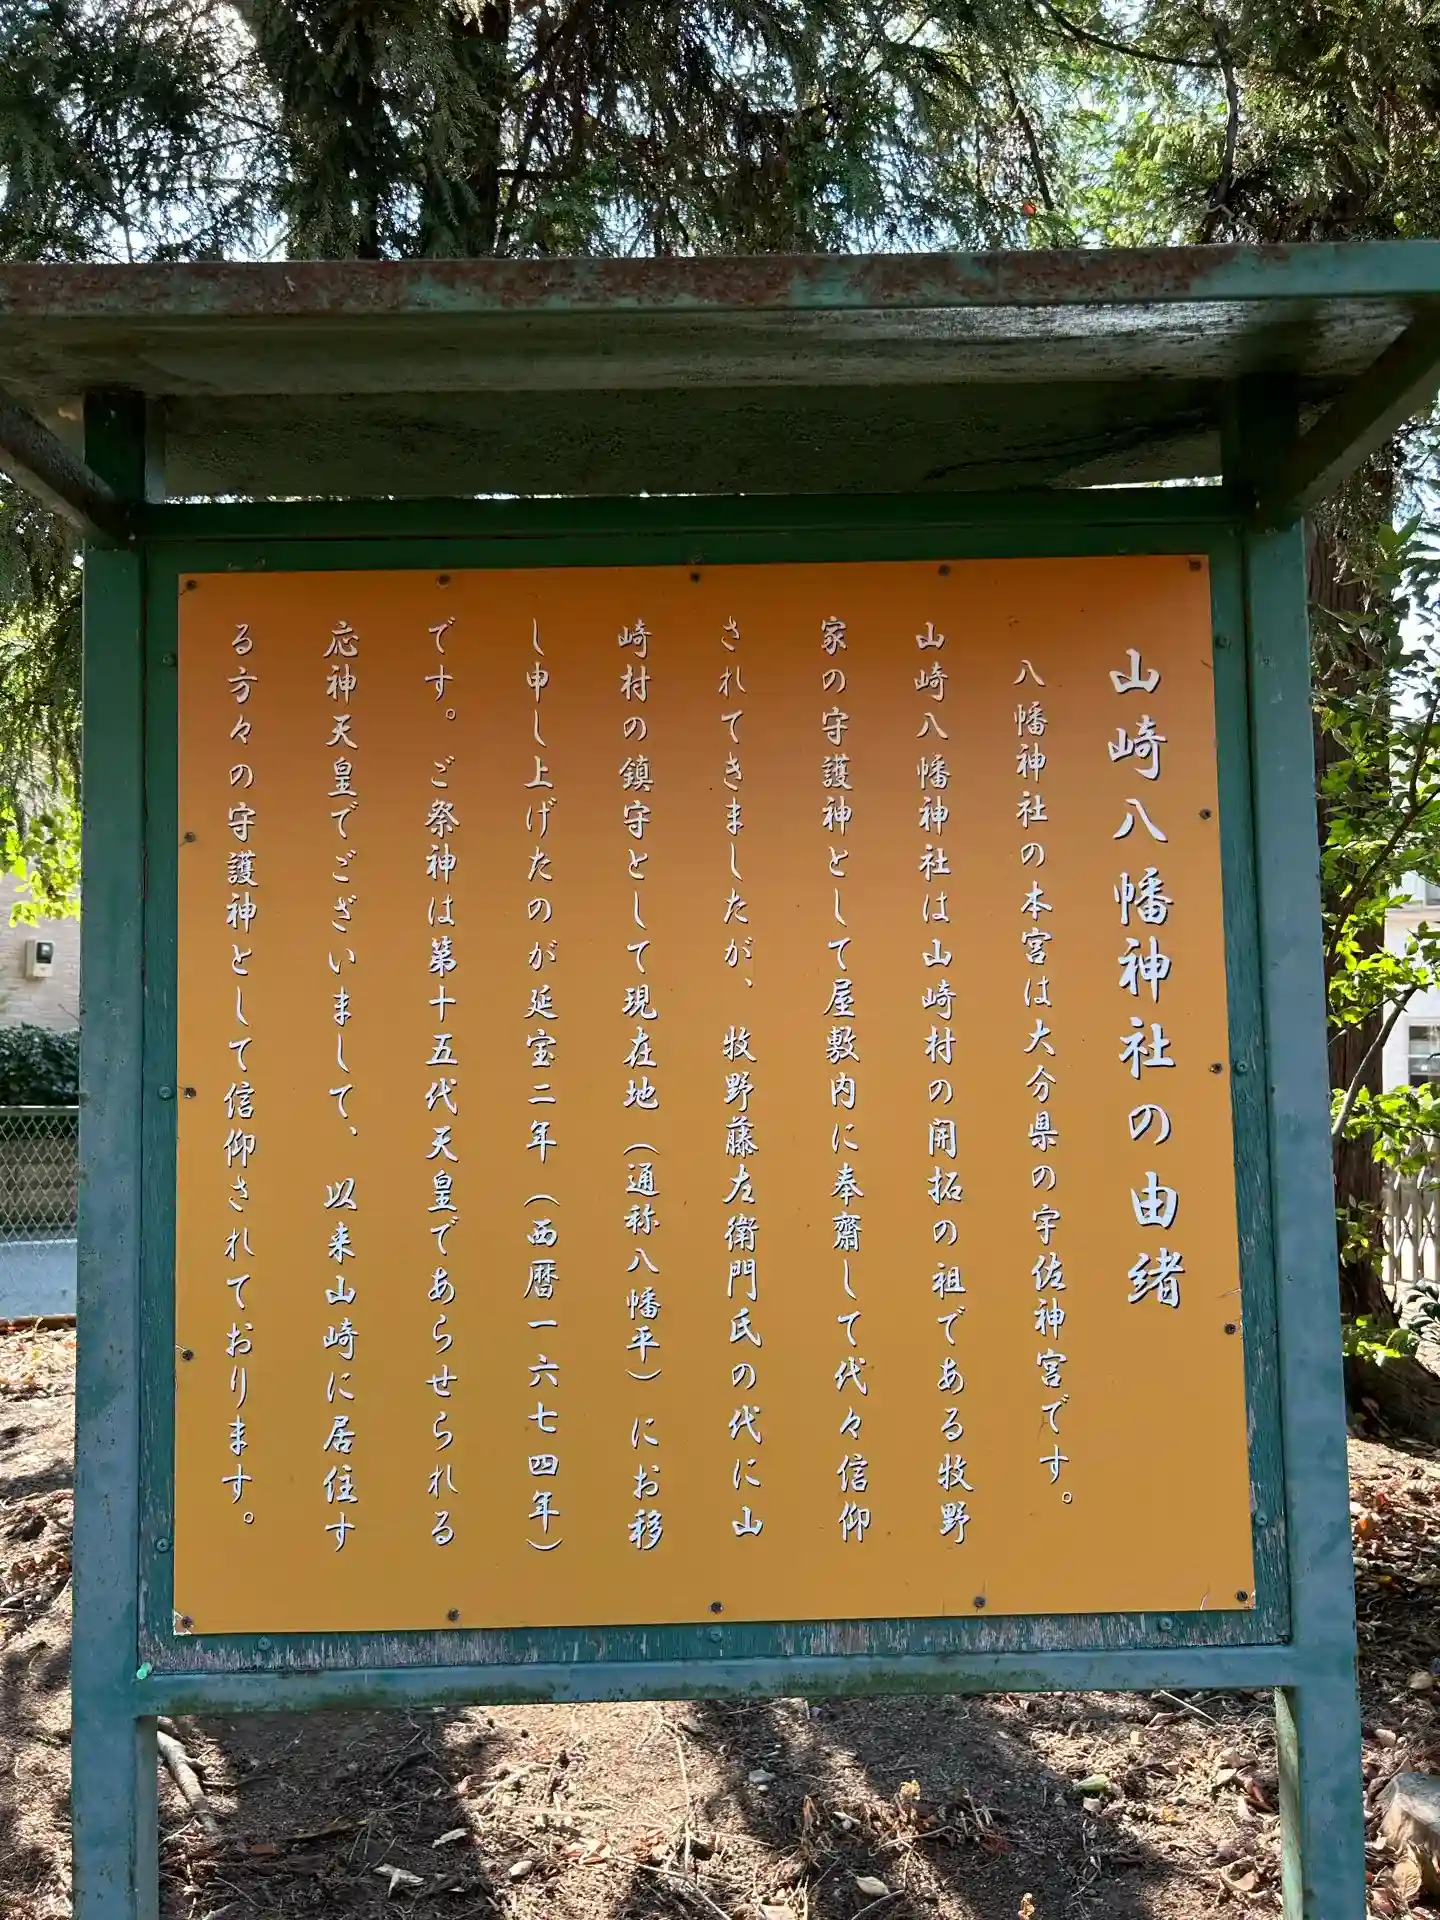 山崎八幡神社の由緒
八幡神社の本宮は大分県の宇佐神宮です。
山崎八幡神社は山崎村の開拓の祖である牧野
家の守護神として屋敷内に奉齋して代々信仰
されてきましたが、牧野藤左衛門氏の代に山
崎村の鎮守として現在地（通称八幡平）にお移
し申し上げたのが延宝二年（西暦一六七四年）
です。ご祭神は第十五代天皇であらせられる
応神天皇でございまして、以来山崎に居住す
る方々の守護神として信仰されております。